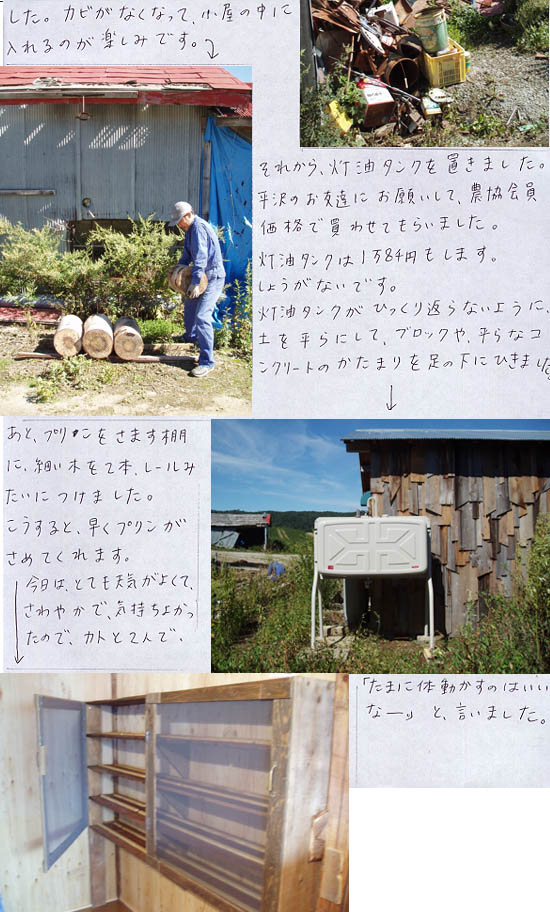 した。カビがなくなって、小屋の中に
入れるのが楽しみです。
それから、灯油タンクを置きました。
平沢のお友達にお願いして、農協会員
価格で買わせてもらいました。
灯油タンクは1万84円もします。
しょうがないです。
灯油タンクがひっくり返らないように、
土を平らにして、ブロックや、平らなコ
ンクリートのかたまりを足の下にひきました
あと、プリンをさます棚
に、細い木を2本、レールみ
たいにつけました。
こうすると、早くプリンが
さめてくれます。
今日は、とても天気がよくて、
さわやかで、気持ちよかっ
たので、カトと2人で、
「たまに体動かすのはいい
なーッと、言いました。